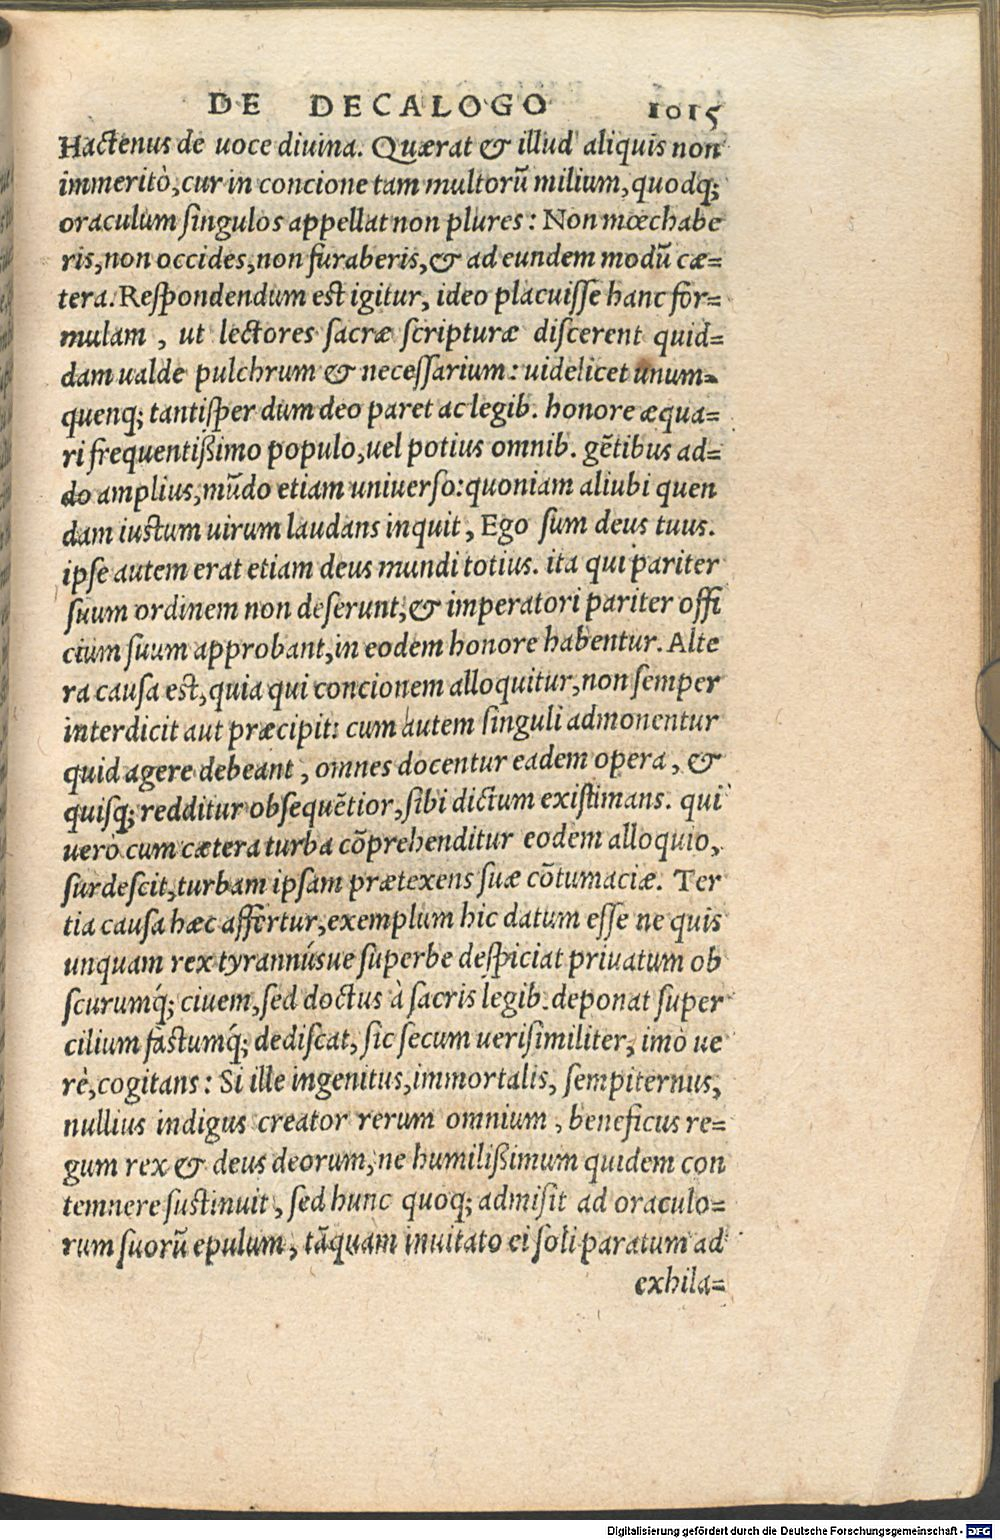 DE DECALOGO 1015
Hactenus de uoce diuina. Quærat & illud aliquis non
immeritò, cur in concione tam multorũ milium, quodq;
oraculum singulos appellat non plures: Non mœchabe
ris, non occides, non furaberis, & ad eundem modũ cæ=
tera. Respondendum est igitur, ideo placuisse hanc for=
mulam, ut lectores sacræ scripturæ discerent quid=
dam ualde pulchrum & necessarium: uidelicet unum=
quenq; tantisper dum deo paret ac legib. honore æqua=
ri frequentißimo populo, uel potius omnib. gẽtibus ad=
do amplius, mũdo etiam uniuerso: quoniam aliubi quen
dam iustum uirum laudans inquit, Ego sum deus tuus.
ipse autem erat etiam deus mundi totius. ita qui pariter
suum ordinem non deserunt, & imperatori pariter offi
cium suum approbant, in eodem honore habentur. Alte
ra causa est, quia qui concionem alloquitur, non semper
interdicit aut præcipit: cum autem singuli admonentur
quid agere debeant, omnes docentur eadem opera, &
quisq; redditur obsequẽtior, sibi dictum existimans. qui
uerò cum cætera turba cõprehenditur eodem alloquio,
surdescit, turbam ipsam prætexens suæ cõtumaciæ. Ter
tia causa hæc affertur, exemplum hic datum esse ne quis
unquam rex tyrannúsue superbe despiciat priuatum ob
scurumq́; ciuem, sed doctus à sacris legib. deponat super
cilium fastumq́; dediscat, sic secum uerisimiliter, imò ue
rè, cogitans: Si ille ingenitus, immortalis, sempiternus,
nullius indigus creator rerum omnium, beneficus re=
gum rex & deus deorum, ne humilißimum quidem con
temnere sustinuit, sed hunc quoq; admisit ad oraculo=
rum suorũ epulum, tãquam inuitato ei soli paratum ad
exhila=
Digitalisierung gefördert durch die Deutsche Forschungsgemeinschaft - DFG